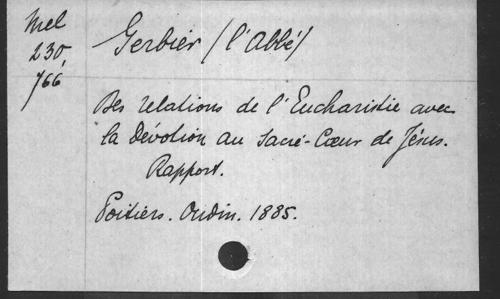 Mel
230,
766
Gerbier (l'abbé)
Des relations de l'Eucharistie avec
la Dévotion au Sacré-Cœur de Jésus.
Rapport.
Poitiers. Oudin. 1885.